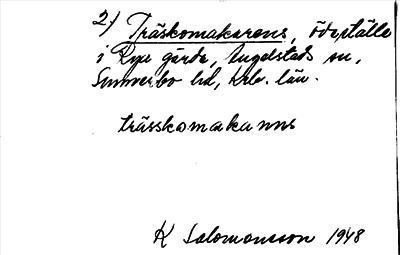 2) Träskomakarens, ödeställe
i Rye gärde, Angelstads sn,
Sunnerbo hd, Krb. län.
trässkomakanns
K Salomonsson 1948